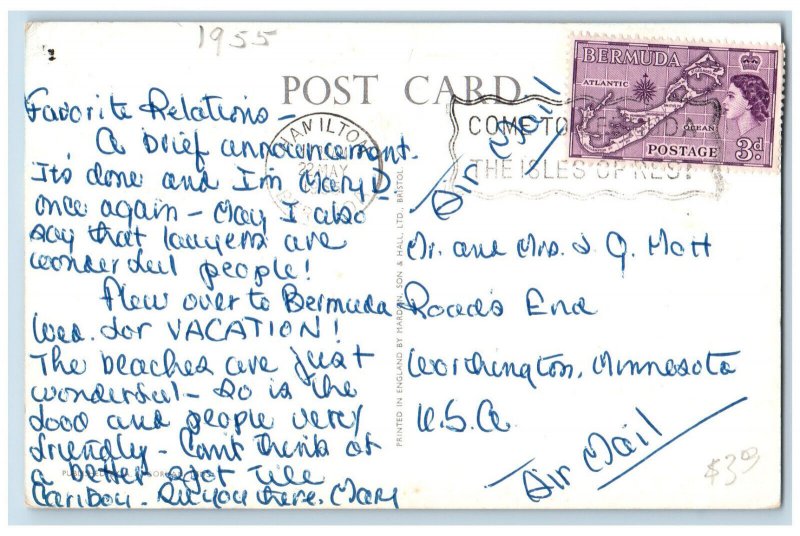 1955
POST CARD
BERMUDA
ATLANTIC
OCEAN
POSTAGE
3d
HAMILTON
22 MAY
COME TO
THE ISLES OF REST
Air Mail
Favorite Relations -
A brief announcement.
Its done and I'm Mary D
once again - May I also
say that lawyers are
wonderful people!
Flew over to Bermuda
Wed. for VACATION!
The beaches are just
wonderful - So is the
food and people very
friendly - Can't think of
a better spot till
Cariboy. See you there. Mary
PRINTED IN ENGLAND BY MARDON, SON & HALL, LTD., BRISTOL
Mr. and Mrs. J. G. Mott
Roads End
Worthington, Minnesota
U.S.A.
Air Mail
$3.99